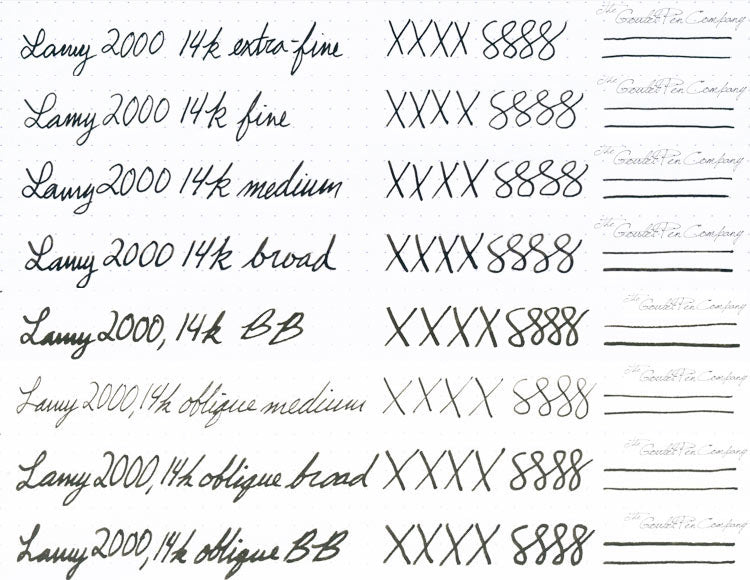 Lamy 2000 14k extra-fine XXXX 8888 The Goulet Pen Company
Lamy 2000 14k fine XXXX 8888 The Goulet Pen Company
Lamy 2000 14k medium XXXX 8888 The Goulet Pen Company
Lamy 2000 14k broad XXXX 8888 The Goulet Pen Company
Lamy 2000, 14k BB XXXX 8888 The Goulet Pen Company
Lamy 2000, 14k oblique medium XXXX 8888 The Goulet Pen Company
Lamy 2000, 14k oblique broad XXXX 8888 The Goulet Pen Company
Lamy 2000, 14k oblique BB XXXX 8888 The Goulet Pen Company